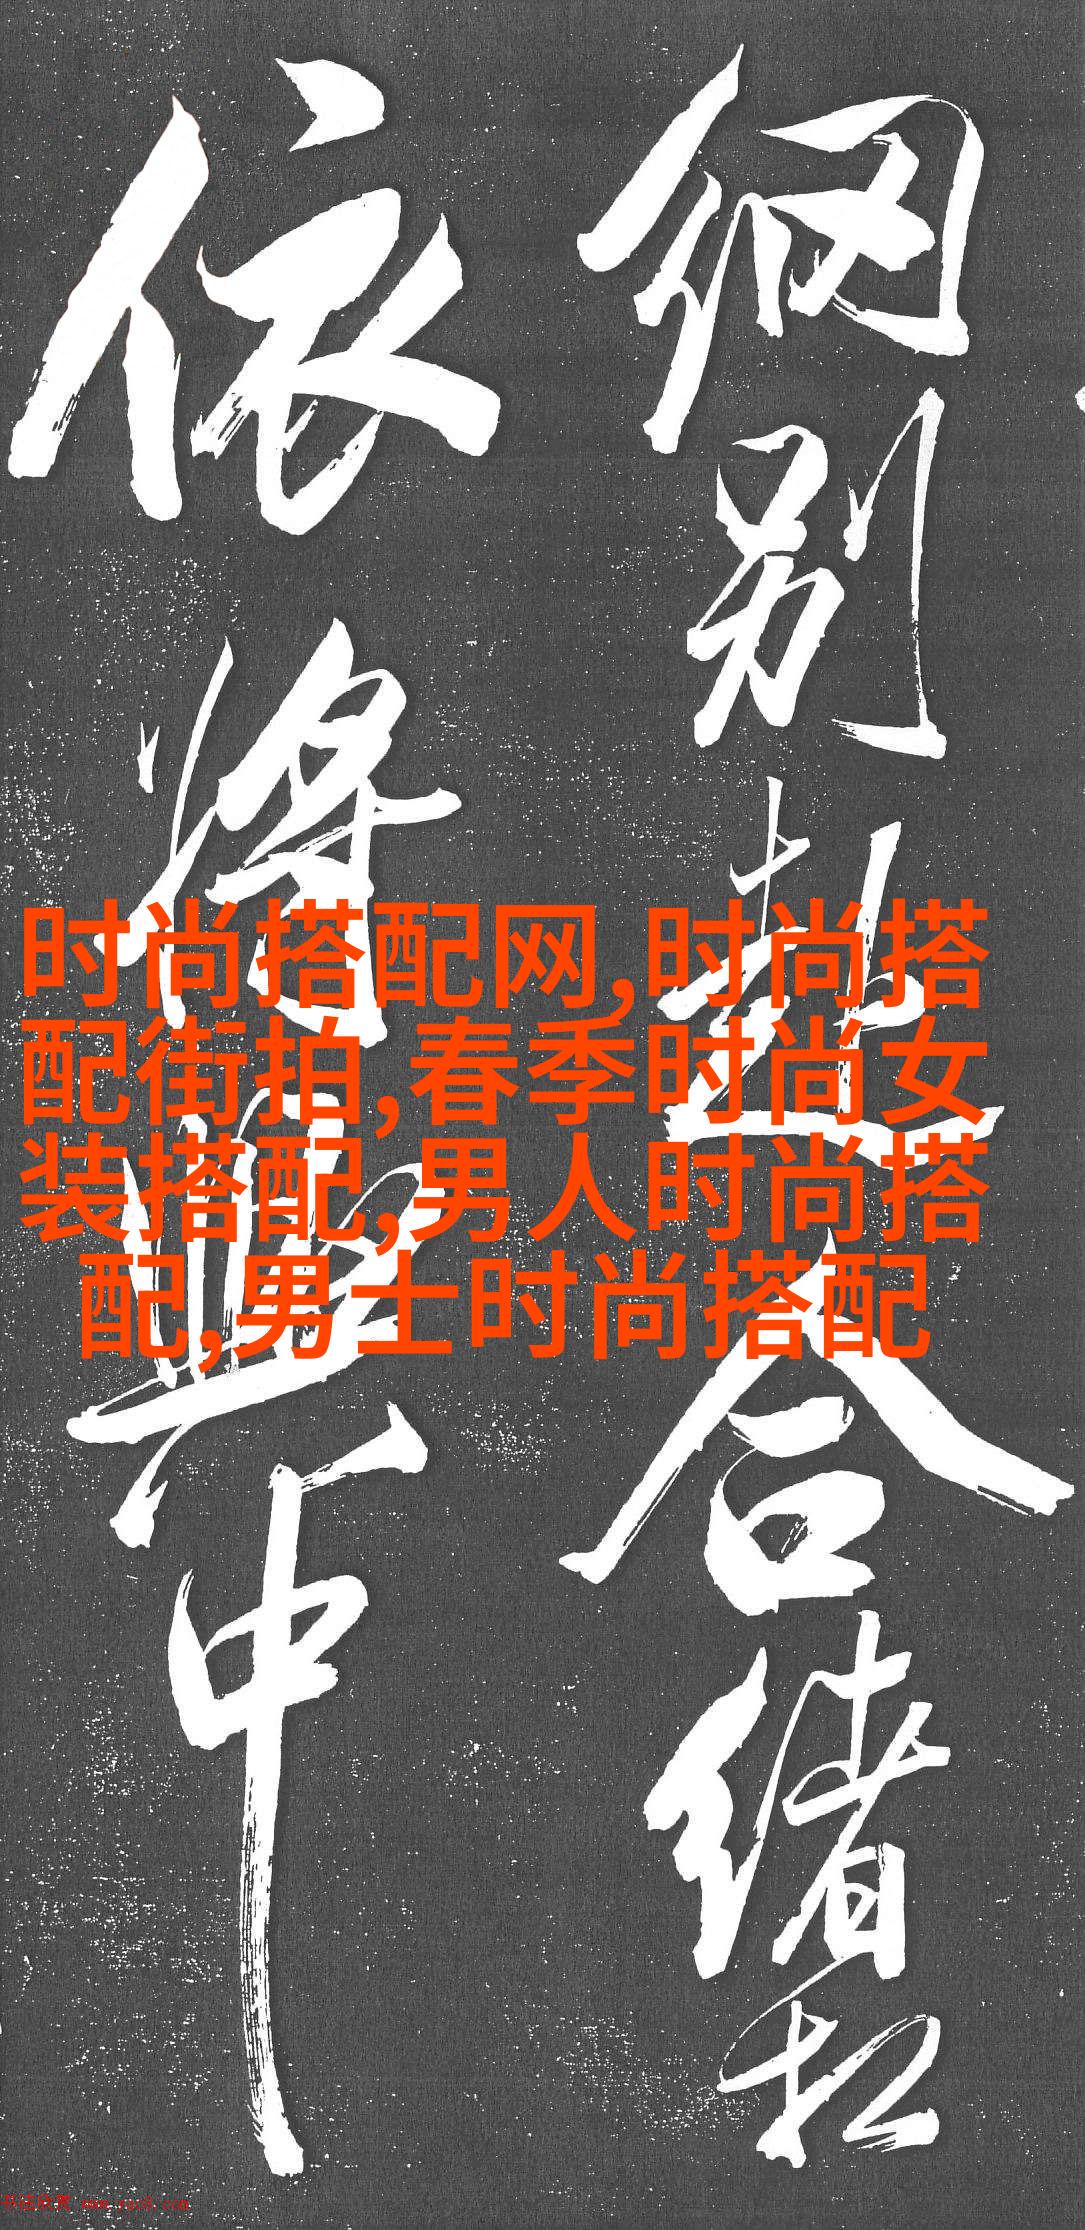 时尚搭配网,时尚搭
配街拍,春季时尚女
装搭配,男人时尚搭
配,男士时尚搭配
别赴合绪
依将与中
书法欣赏 www.yac8.com